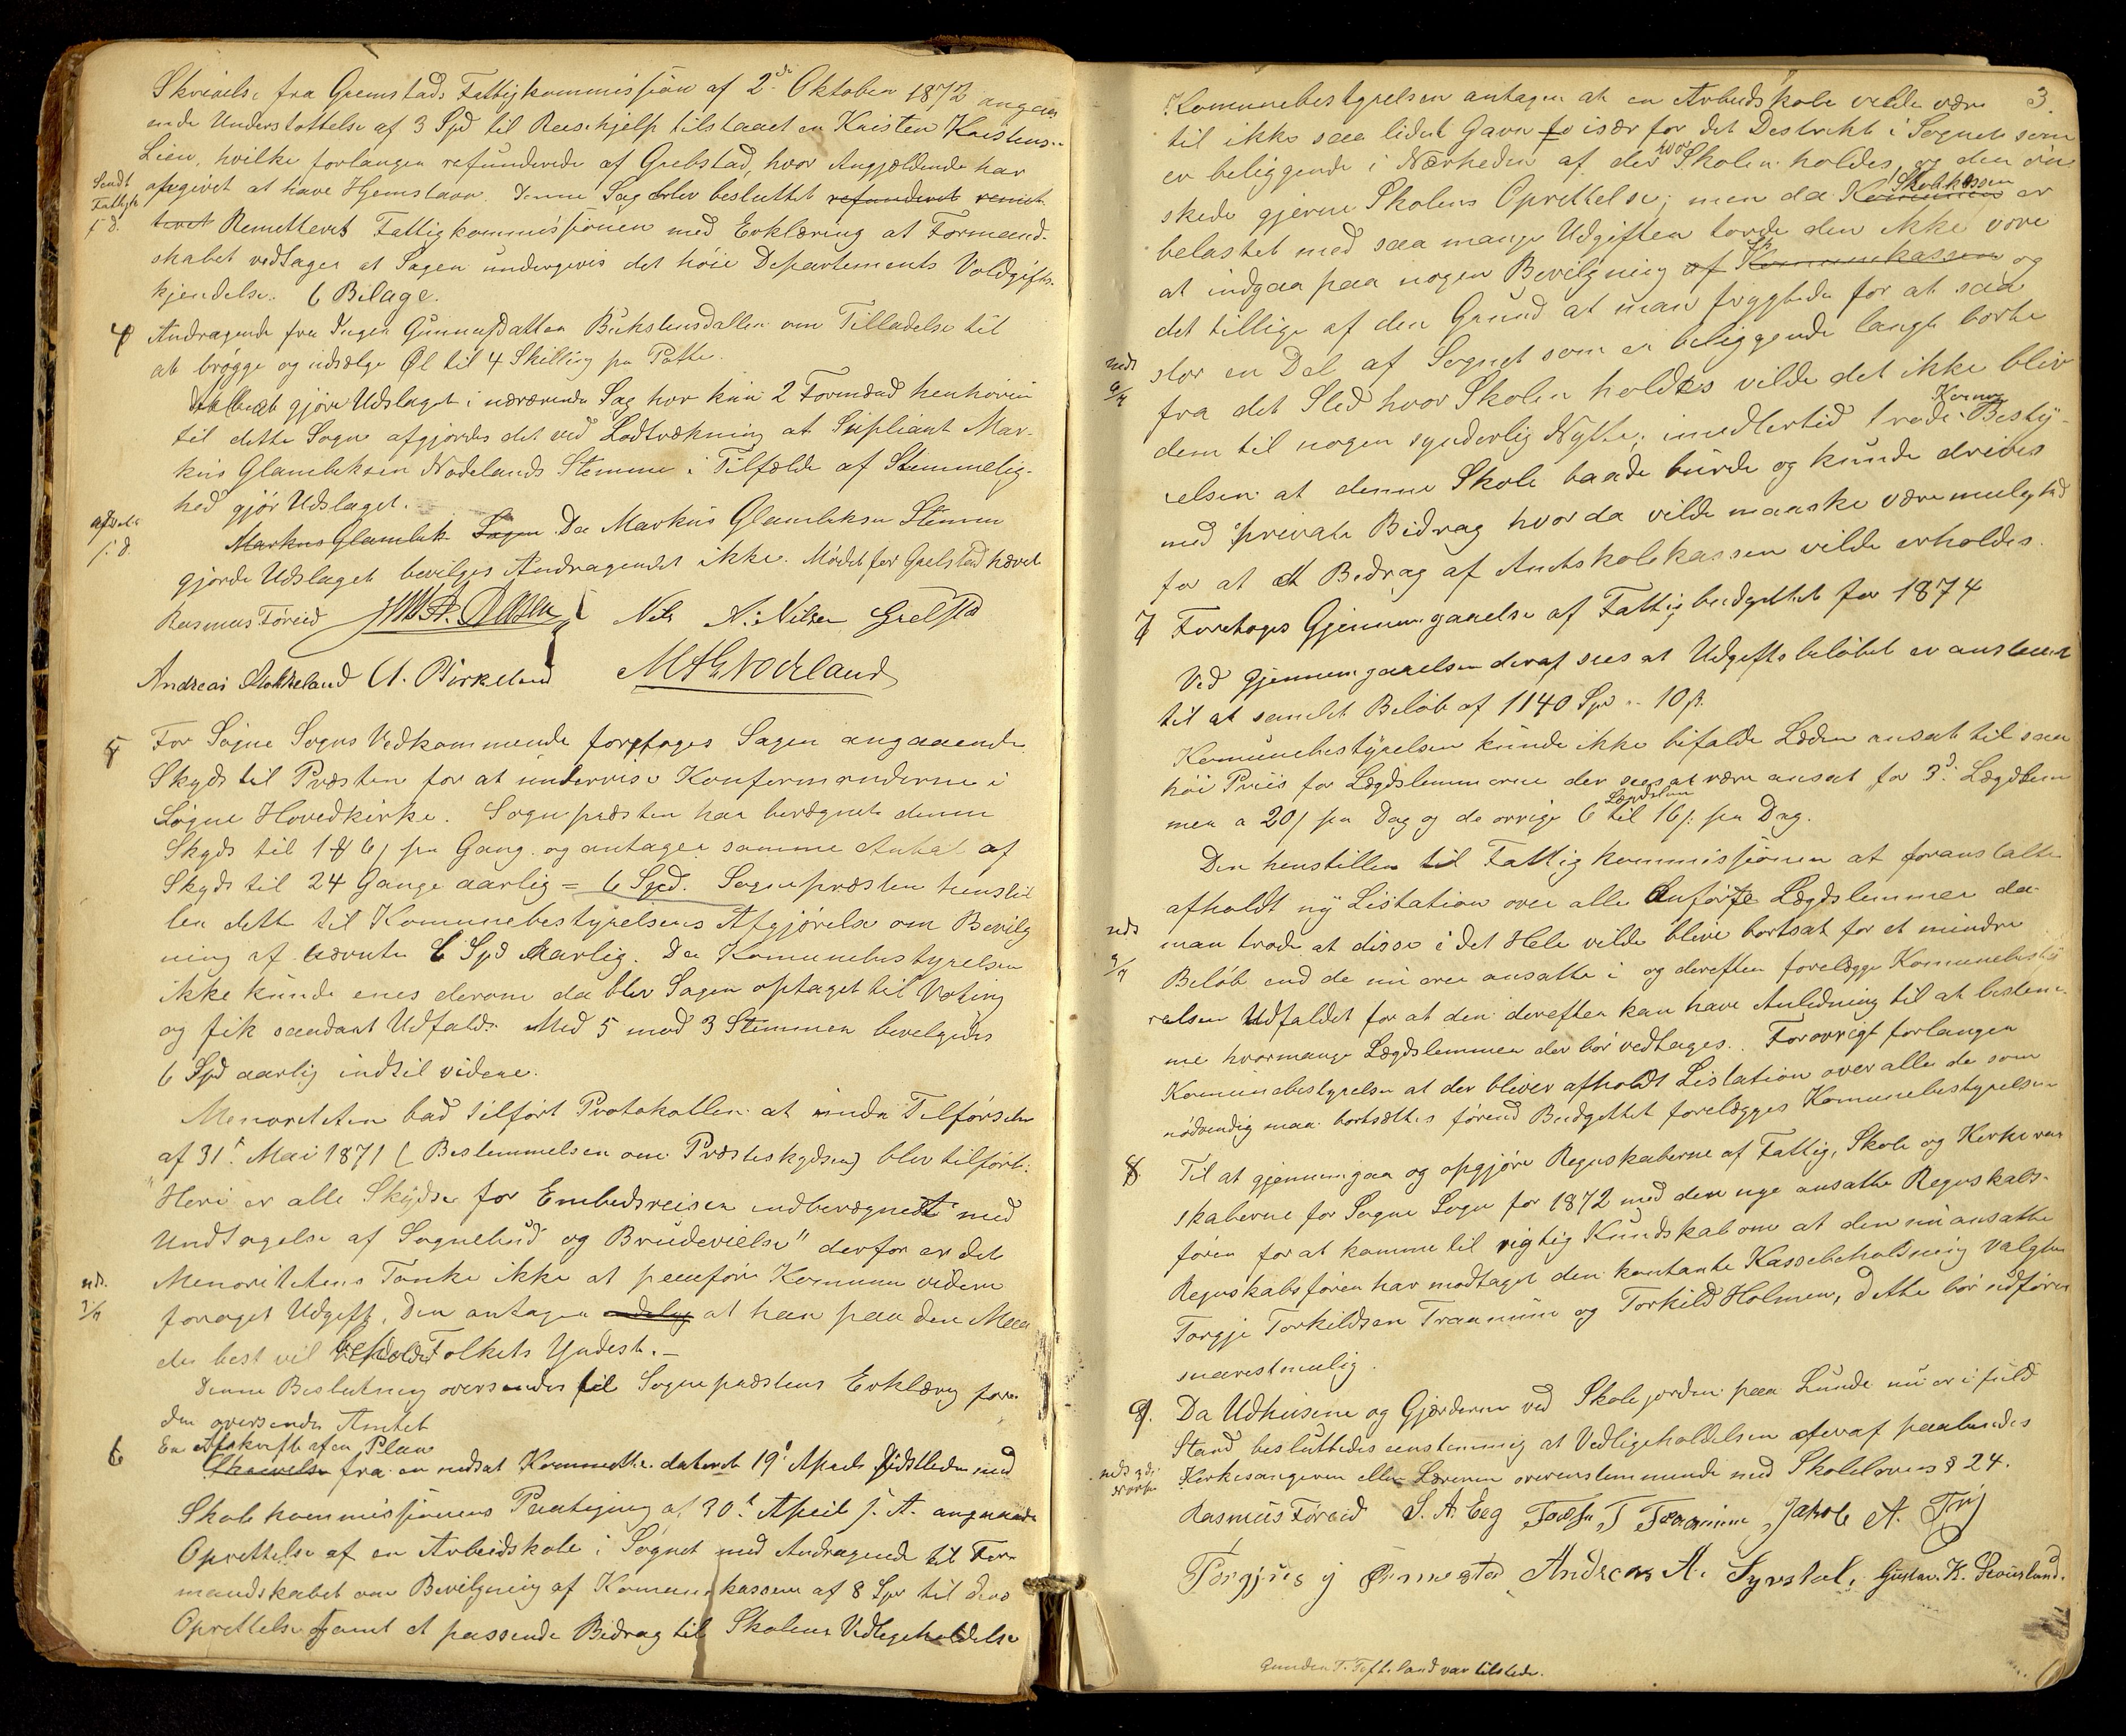 Skrivelse fra Grimstads Fattigkommission af 2de Oktober 1872 angaa-
ende Understøttelse af 3 Spd til Reisehjelp tilstaaet en Kristen Kristens.
Lien, hvilke forlanges refunderede af Grebstad, hvor Angjældende har
Sendt afgivet at have Hjemstavn. Denne Sag blev besluttet refunderet remit-
Fattigk
teret Remitteret Fattigkommissionen med Erklæring at Formand-
skabet vedtager at Sagen undergives det høie Departements Voldgifts-
kjendelse. 6 Bilage.
4 Andragende fra Inger Gunnufsdatter Bukstensdallen om Tilladelse til
at brygge og udsælge Øl til 4 Skilling pr Potte.
gjøre Udslaget i nærværende Sag hvor kun 2 Formænd henhører
til dette Sogn afgjordes det ved Lodtrækning at Supliant Mar-
kus Glambeksen Nodelands Stemme i Tilfælde af Stemmelig-
hed gjør Udslaget.
Markus Glambek Sagen Da Markus Glambeksen Stemme
gjorde Udslaget bevilges Andragendet ikke. Mødet for Grelstad hævet
Rasmus Føreid Nils N. Nilsen Grelstad
Andreas Stokkeland A. Birkeland M A G Nodeland
5 For Søgne Sogns Vedkommende foretoges Sagen angaaende
Skyds til Præsten for at undervise Konfermanderne i
Søgne Hovedkirke. Sognepræsten har beregnet denne
Skyds til 1 ₰ 6 s pr Gang og antager samme Antal af
Skyds til 24 Gange aarlig = 6 Spd. Sognepræsten henstil
ler dette til Komunebestyrelsens Afgjørelse om Bevilg
ning af nævnte 6 Spd aarlig. Da Komunebestyrelsen
ikke kunde enes derom da blev Sagen optaget til Voting
og fik saadant Udfald: Med 5 mod 3 Stemmer bevilgedes
6 Spd aarlig indtil videre.
Menoriteten bad tilført Protokollen at under Tilførselen
af 31t Mai 1871 (Bestemmelsen om Præsteskydsen) blev tilført:
"Heri er alle Skydse for Embedsreiser indberegnet med
Undtagelse af Sognebud og Brudevielse" derfor er det
Menoritetens Tanke ikke at paaføre Komunen videre
forøget Udgift, Den antager at han paa den Maa
de best vil beholde Folkets Yndest. –
Denne Beslutning oversendes til Sognepræstens Erklæring før
den oversendes Amtet
6 En Afskrift af en Plan
Skrivelse fra en nedsat Kommitte dateret 19de Aprils sidstleden med
Skolekommissionens Paategning af 30t April s. A. angaaende
Oprettelse af en Arbeidskole i Sognet med Andragende til For-
mandskabet om Bevilgning af Komunekassen af 8 Spd til dens
Oprettelse samt et passende Bidrag til Skolens Vedligeholdelse
3.
Komunebestyrelsen antager at en Arbeidskole vilde være
til ikke saa lidet Gavn fo især for det Destrikt i Sognet som
er beliggende i Nærheden af der hvor Skolen holdes, og den øn
skede gjerne Skolens Oprettelse; men da Komunens Skolekassen er
belastet med saa mange Udgifter torde den ikke vove
at indgaa paa nogen Bevilgning af Komunekassen og
det tillige af den Grund at man frygtede for at saa
stor en Del af Sognet som er beliggende langt borte
fra det Sted hvor Skolen holdes vilde det ikke bliv
dem til nogen synderlig Nytte; imedlertid trode Komu Besty-
relsen at denne Skole baade burde og kunde drives
med private Bidrag hvor da vilde maaske være mulighed
for at et Bedrag af Amtskolekassen vilde erholdes.
7 Foretoges Gjennemgaaelse af Fattigbudgettet for 1874
Ved Gjennemgaaelsen deraf sees at Udgiftsbeløbet er anslaaet
til et samlet Beløb af 1140 Spd .. 10 s.
Komunebestyrelsen kunde ikke bifalde Læden ansat til saa
høi Priis for Lægdslemmerne der sees at være ansat for 3de Lægdslem
mer a 20 s pr Dag og de øvrige 6 Lægdslem til 16 s. pr Dag.
Den henstiller til Fattigkommissionen at foranstalte
afholdt ny Listation over alle Anførte Lægdslemmer da
man trode at disse i det Hele vilde blive bortsat for et mindre
Beløb end de nu ere ansatte i og derefter forelægge Komunebesty
relsen Udfaldet for at den derefter kan have Anledning til at bestem-
me hvormange Lægdslemmer der bør vedtages. Forøvrigt forlanger
Komunebestyrelsen at der bliver afholdt Listation over alle de som
nødvendig maa bortsættes førend Budgettet forelægges Komunebestyrelsen
8 Til at gjennemgaa og opgjøre Regnskaberne af Fattig, Skole og Kirkeregn
skaberne for Søgne Sogn for 1872 med den nye ansatte Regnskabs-
fører for at komme til rigtig Kundskab om at den nu ansatte
Regnskabsfører har modtaget den kontante Kassebeholdning valgtes
Torgje Torkildsen Traanum og Torkild Holmen, dette bør udføres
snarest mulig.
9. Da Udhusene og Gjerderne ved Skolejorden paa Lunde nu er i fuld
Stand besluttedes eenstemmig at Vedligeholdelsen deraf paalindes
Kirkesangeren eller Læreren overenstemmende med Skolelovens § 24.
Rasmus Føreid S. A. Eeg T Traanum Jakob A. Try
Torgjus Ormestad Andreas A. Syrstal. Gustav K. Louisland.
Gunder T. Tofteland var tilstede.